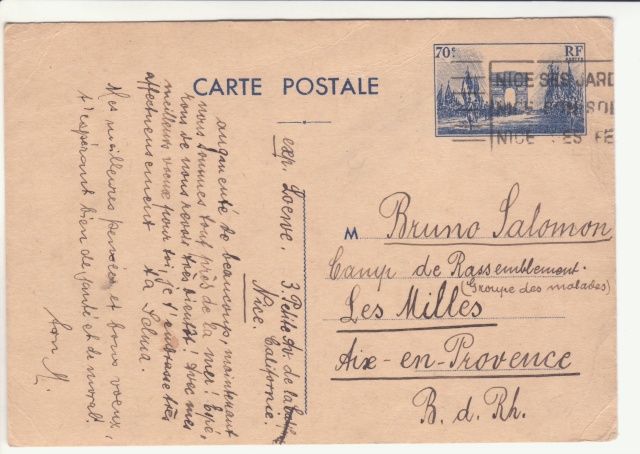 70c
RF
CARTE POSTALE
NICE SES JARD
NICE SON SOL
NICE SES FE
M Bruno Salomon
Camp de Rassemblement.
(Groupe des malades)
Les Milles
Aix-en-Provence
B. d. Rh.
exp. Loewe. 3. Petite Av. de la
Californie.
Nice.
augmenté de beaucoup, maintenant
nous sommes tout près de la mer!
rons de nous revoir très bientôt! Avec mes
meilleurs voeux pour toi, je t'embrasse très
affectueusement ta Selma.
Mes meilleures pensées et bons voeux,
t'espérant bien de santé et de moral.
ton M.